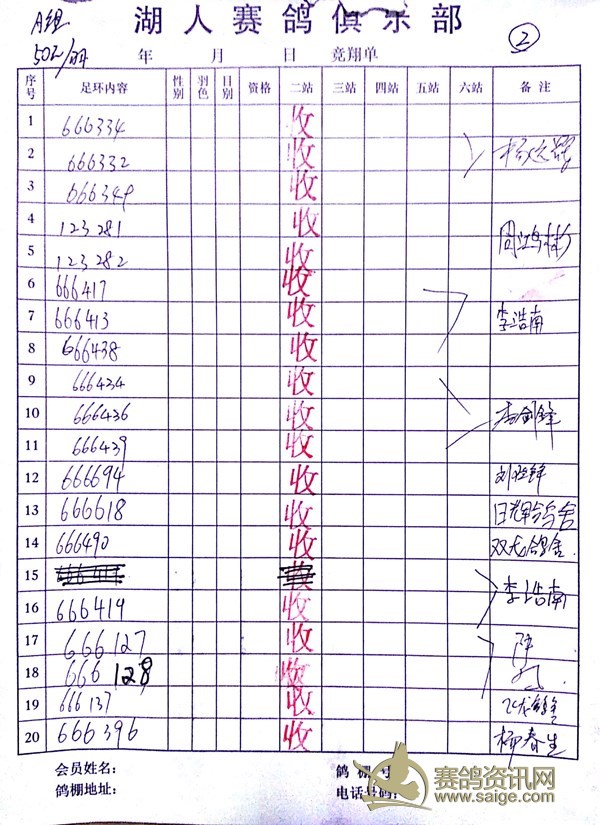 A组
湖人赛鸽俱乐部
50元/羽 年 月 日 竞翔单 ②
序号 足环内容 性别 羽色 日别 资格 二站 三站 四站 五站 六站 备注
1 666334 收
2 666332 收
3 666349 收
4 123281 收 周鸿彬
5 123282 收
6 666417 收
7 666413 收 李浩南
8 666438 收
9 666434 收
10 666436 收 李剑锋
11 666439 收
12 666694 收
13 666618 收 日辉鸽舍
14 666490 收 双龙鸽舍
15
16 666419 收 李浩南
17 666127 收
18 666128 收
19 666137 收
20 666396 收 柳春生
会员姓名: 鸽棚号:
鸽棚地址: 电话号码:
赛鸽资讯网
www.saige.com